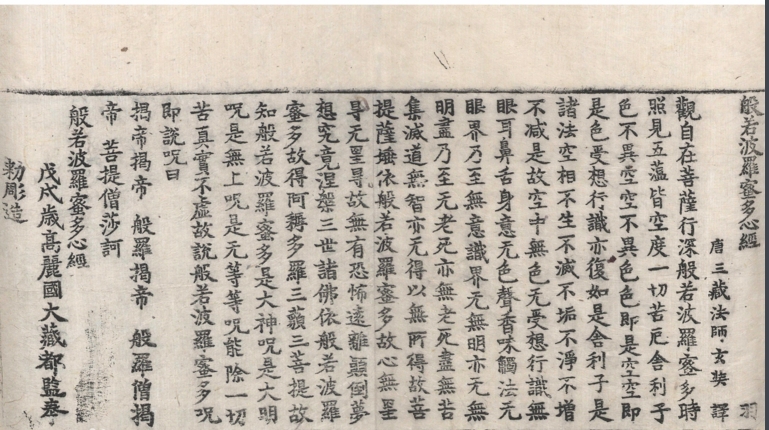 般若波羅蜜多心經 羽
唐三藏法師玄奘 譯
觀自在菩薩行深般若波羅蜜多時
照見五蘊皆空度一切苦厄舍利子
色不異空空不異色色即是空空即
是色受想行識亦復如是舍利子是
諸法空相不生不滅不垢不淨不增
不减是故空中無色无受想行識無
眼耳鼻舌身意无色聲香味觸法无
眼界乃至無意識界无無明亦无無
明盡乃至无老死亦無老死盡無苦
集滅道無智亦无得以無所得故菩
提薩埵依般若波羅蜜多故心無罣
㝵无罣㝵故無有恐怖遠離顚倒夢
想究竟涅槃三世諸佛依般若波羅
蜜多故得阿耨多羅三藐三菩提故
知般若波羅蜜多是大神呪是大明
呪是無上呪是无等等呪能除一切
苦真實不虛故說般若波羅蜜多呪
即說呪曰
揭帝揭帝 般羅揭帝 般羅僧揭
帝 菩提僧莎訶
般若波羅蜜多心經
戊戌歲高麗國大藏都監奉
勅彫造